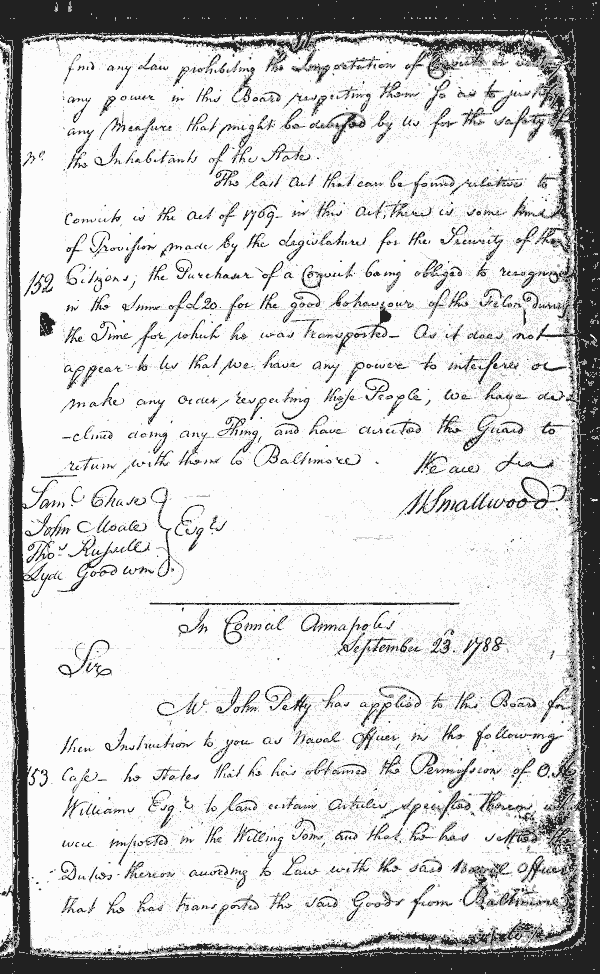 find any Law prohibiting the Importation of Convicts or
any power in this Board respecting them so as to justify
any Measure that might be devised by us for the safety of
the Inhabitants of the State.
The last Act that can be found relative to
Convicts is the Act of 1769. in this Act, there is some kind
of Provision made by the Legislature for the Security of the
152 Citizens; the Purchaser of a Convict being obliged to recognize
in the Sum of £20. for the good behaviour of the Felon, during
the Time for which he was transported – As it does not
appear to Us that we have any power to interfere or
make any order, respecting those People, we have de
-clined doing any Thing, and have directed the Guard to
return with them to Baltimore. We are &ca
W Smallwood
Saml. Chase
John Moale
Thos. Russell
Lyde Goodwin
Esqrs
In Council Annapolis
September 23. 1788.
Sir
Mr. John Petty has applied to this Board for
their Instruction to you as Naval Officer, in the following
153 Case – he states that he has obtained the Permission of O. H.
Williams Esqr. to land certain Articles, specified therein
were imported in the Willing Tom, and that he has settled the
Duties thereon according to Law with the said Naval Officer
that he has transported the said Goods from Baltimore